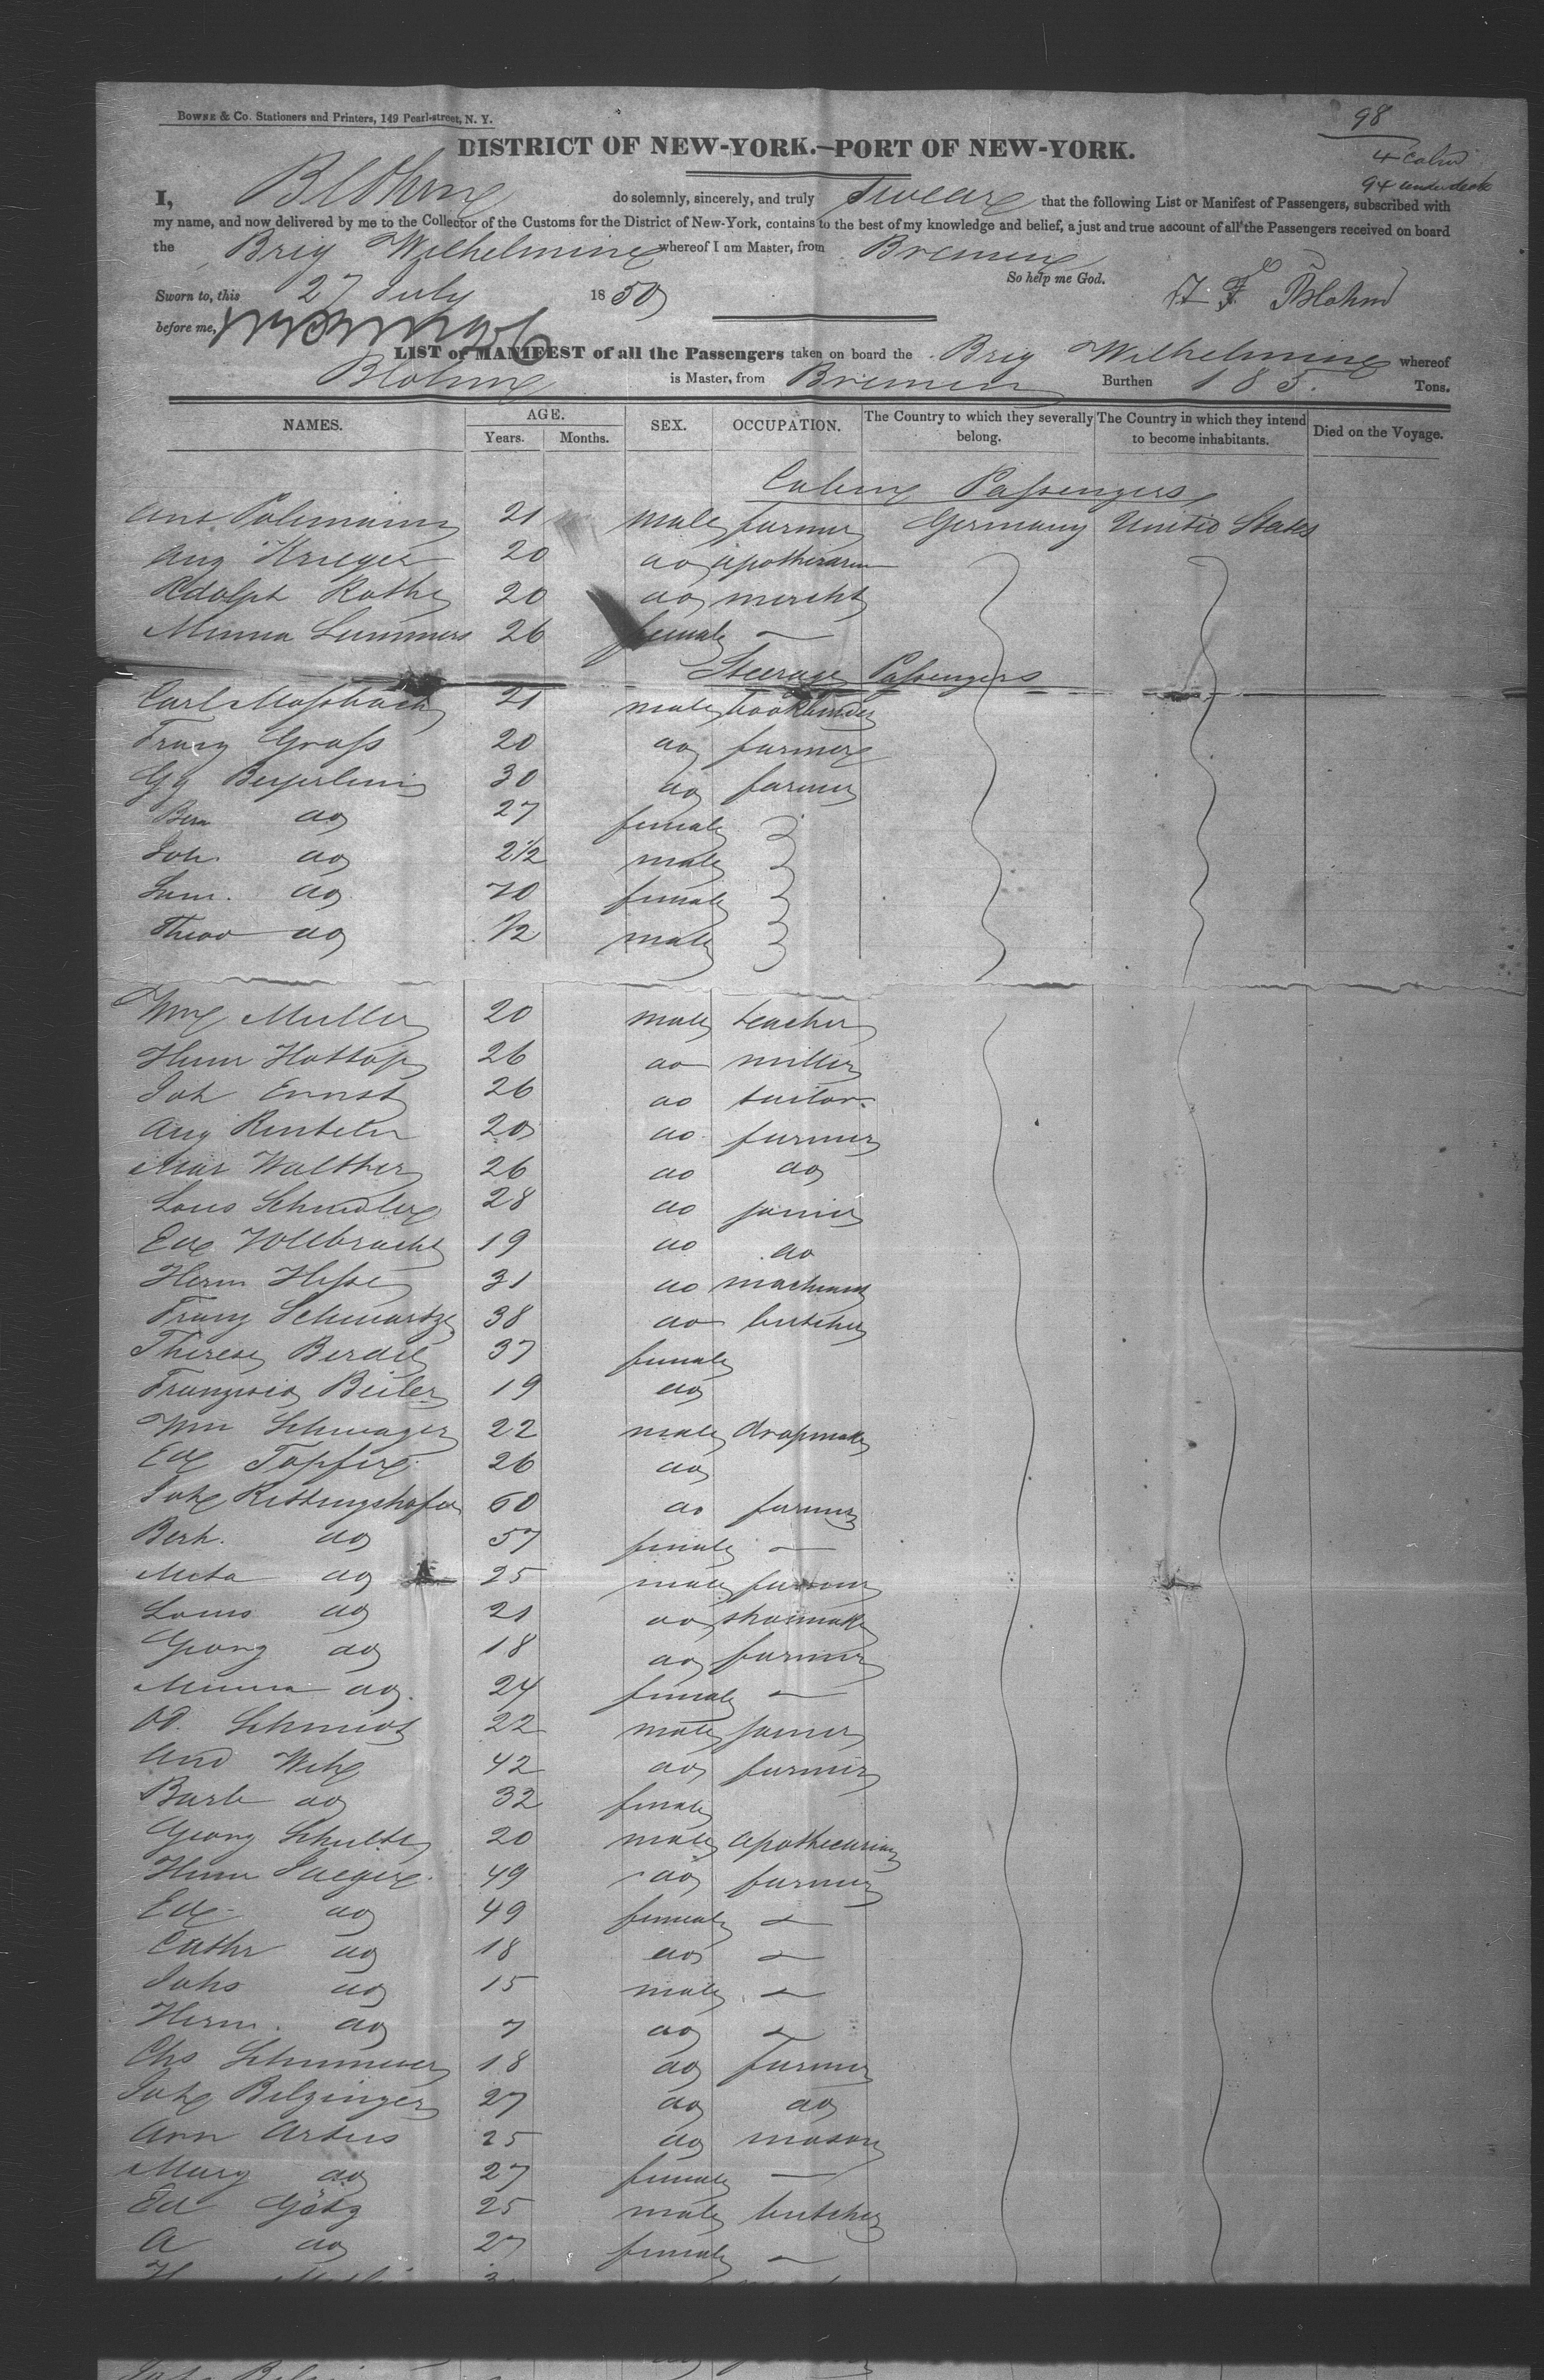 BOWNE & Co. Stationers and Printers, 149 Pearl-street, N. Y.
98
DISTRICT OF NEW-YORK.—PORT OF NEW-YORK.
4 cabin
94 underdeck
I, Blohme do solemnly, sincerely, and truly sweare that the following List or Manifest of Passengers, subscribed with
my name, and now delivered by me to the Collector of the Customs for the District of New-York, contains to the best of my knowledge and belief, a just and true account of all the Passengers received on board
the Brig Wilhelmine whereof I am Master, from Bremen
So help me God.
Sworn to, this 27 July 1850
Blohm
before me,
LIST or MANIFEST of all the Passengers taken on board the Brig Wilhelmine whereof
Blohme is Master, from Bremen Burthen 185. Tons.
NAMES. AGE. Years. Months. SEX. OCCUPATION. The Country to which they severally belong. The Country in which they intend to become inhabitants. Died on the Voyage.
Cabin Passengers
Ant Pohlmann 21 male farmer Germany United States
Aug Krieger 20 do
Adolph Rothe 20 do mercht
Minna Lummers 26 female —
Steerage Passengers
Carl Mossbach 21 male bookbinder
Franz Gross 20 do farmer
Gg Beyerlein 30 do farmer
do 27 female
Joh. do 2 1/2 male
do female
Theod do 1/2 male
Wm Muller 20 male teacher
Herm Hottop 26 do miller
Joh Ernst 26 do tailor
Aug Rinteln 20 do farmer
Mar Walther 26 do do
Louis Schindler 28 do joiner
Ed Vollbracht 19 do do
Herm Hesse 31 do machinist
Franz Schwartze 38 do butcher
Therese Berdel 37 female
Franzisca Beiler 19 do
Wm Schwager 22 male
Ed Topfer 26 do
Joh Rittingshofer 60 do farmer
Berh. do 57 female —
Meta do 25 male farmer
Louis do 21 do shoemaker
Georg do 18 do farmer
Minna do 24 female —
Ad. Schmidt 22 male joiner
And 42 do farmer
Barb do 32 female
Georg Schulte 20 male
Herm Jaeger 49 do farmer
do 49 female —
Cathr do 18 do —
Johs do 15 male —
Herm. do 7 do —
Chs 18 do farmer
Joh Belzinger 27 do do
Ann 25 do mason
Mary do 27 female —
Ed Götz 25 male butcher
A do 27 female —